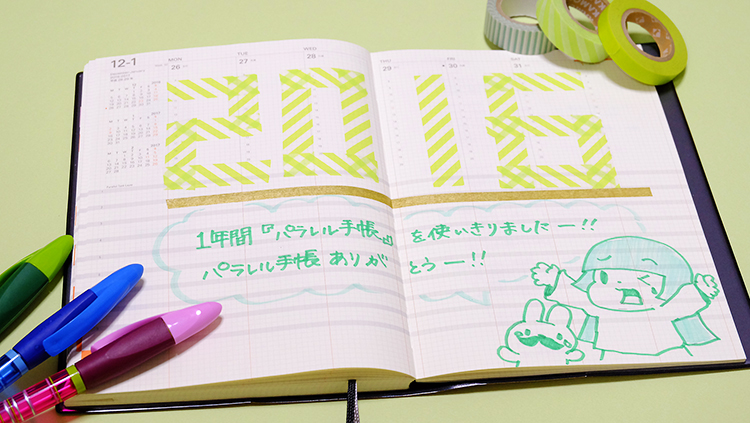 12-1
MON TUE WED FRI SAT
26 27 28 29 30 31
2016
1年間『パラレル手帳』を使いきりましたー!!
パラレル手帳 ありがとうー!!